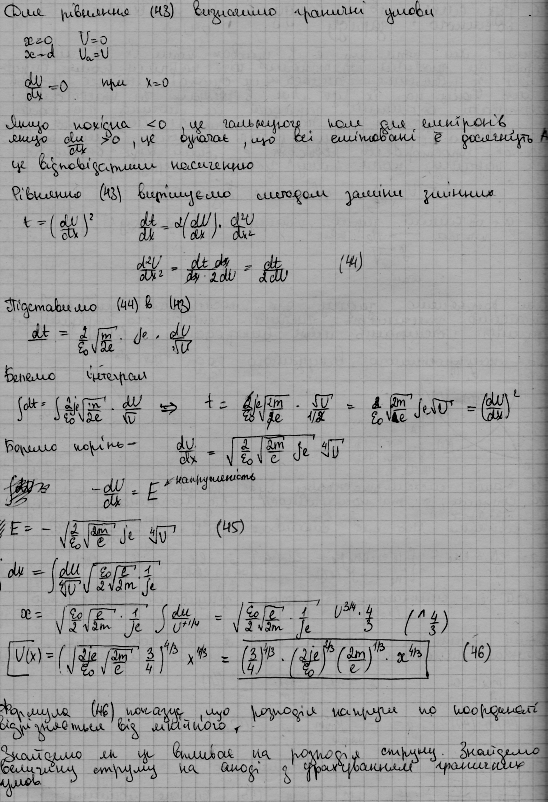 Для рівняння (43) визначимо граничні умови
x=0 U=0
x=d Ua=U
dU/dx = 0 при x=0
Якщо похідна <0, це гальмуюче поле для електронів
якщо dU/dx >0, це означає, що всі емітовані ē досягнуть A
це відповідатиме насиченню
Рівняння (43) вирішуємо методом заміни змінних
t = (dU/dx)² dt/dx = 2(dU/dx) · d²U/dx²
d²U/dx² = dt dx / dx · 2dU = dt/2dU (44)
Підставимо (44) в (43)
dt = 2/ε₀ √(m/2e) · je · dU/√U
Беремо інтеграл
∫dt = ∫ 2je/ε₀ √(m/2e) · dU/√U ⇒ t = 2je/ε₀ √(2m/2e) · √U/1/2 = 2/ε₀ √(2m/e) je√U = (dU/dx)²
Беремо корінь – dU/dx = √(2/ε₀ √(2m/e) je) ⁴√U
-dU/dx = E напруженість
E = - √(2/ε₀ √(2m/e) je) ⁴√U (45)
dx = ∫ dU/⁴√U √(ε₀/2 √(e/2m) · 1/je)
x = √(ε₀/2 √(e/2m) · 1/je) ∫ du/U^+1/4 = √(ε₀/2 √(e/2m) · 1/je) U^3/4 · 4/3 (^ 4/3)
U(x) = (√(2je/ε₀ √(2m/e)) 3/4)^4/3 x^4/3 = (3/4)^4/3 · (2je/ε₀)^2/3 (2m/e)^1/3 · x^4/3 (46)
Формула (46) показує, що розподіл напруги по координаті
відрізняється від лінійного.
Знайдемо як це впливає на розподіл струму. Знайдемо
величину струму на аноді з урахуванням граничних
умов